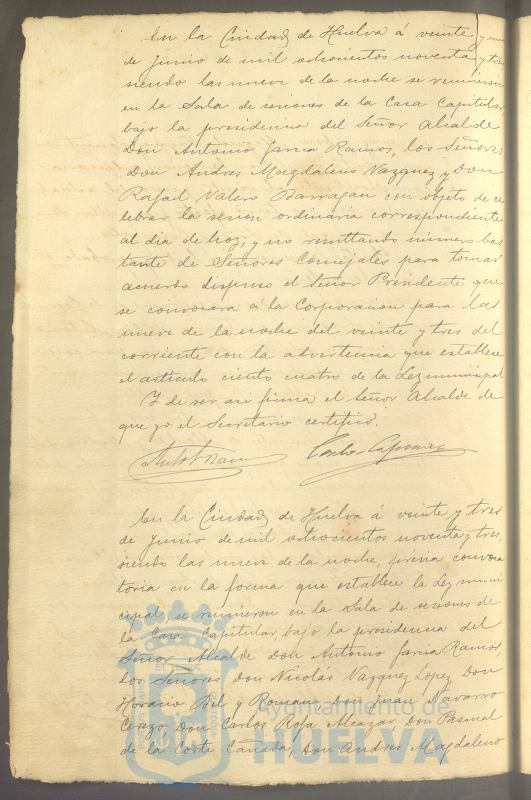 En la Ciudad de Huelva á veinte y uno
de Junio de mil ochocientos noventa y tres
siendo las nueve de la noche se reunieron
en la Sala de sesiones de la Casa Capitular
bajo la presidencia del Señor Alcalde
Don Antonio Garcia Ramos, los Señores
Don Andres Magdaleno Vazquez y Don
Rafael Valero Barragan con objeto de ce
lebrar la sesion ordinaria correspondiente
al dia de hoy, y no resultando número bas
tante de Señores Concejales para tomar
acuerdo dispuso el Señor Presidente que
se convocara á la Corporacion para las
nueve de la noche del veinte y tres del
corriente con la advertencia que establece
el artículo ciento cuatro de la Ley municipal
Y de ser asi firma el Señor Alcalde de
que yo el Secretario certifico.
En la Ciudad de Huelva á veinte y tres
de Junio de mil ochocientos noventa y tres,
siendo las nueve de la noche, prévia convoca
toria en la forma que establece la Ley muni
cipal, se reunieron en la Sala de sesiones de
la Casa Capitular, bajo la presidencia del
Señor Alcalde Don Antonio Garcia Ramos,
los Señores Don Nicolás Vazquez Lopez Don
Horacio Bel y Roman Don Juan Navarro
Cerezo, Don Carlos Roja Alcazar, Don Pascual
de la Corte Cañada, Don Andrés Magdaleno
Ayuntamiento de
HUELVA